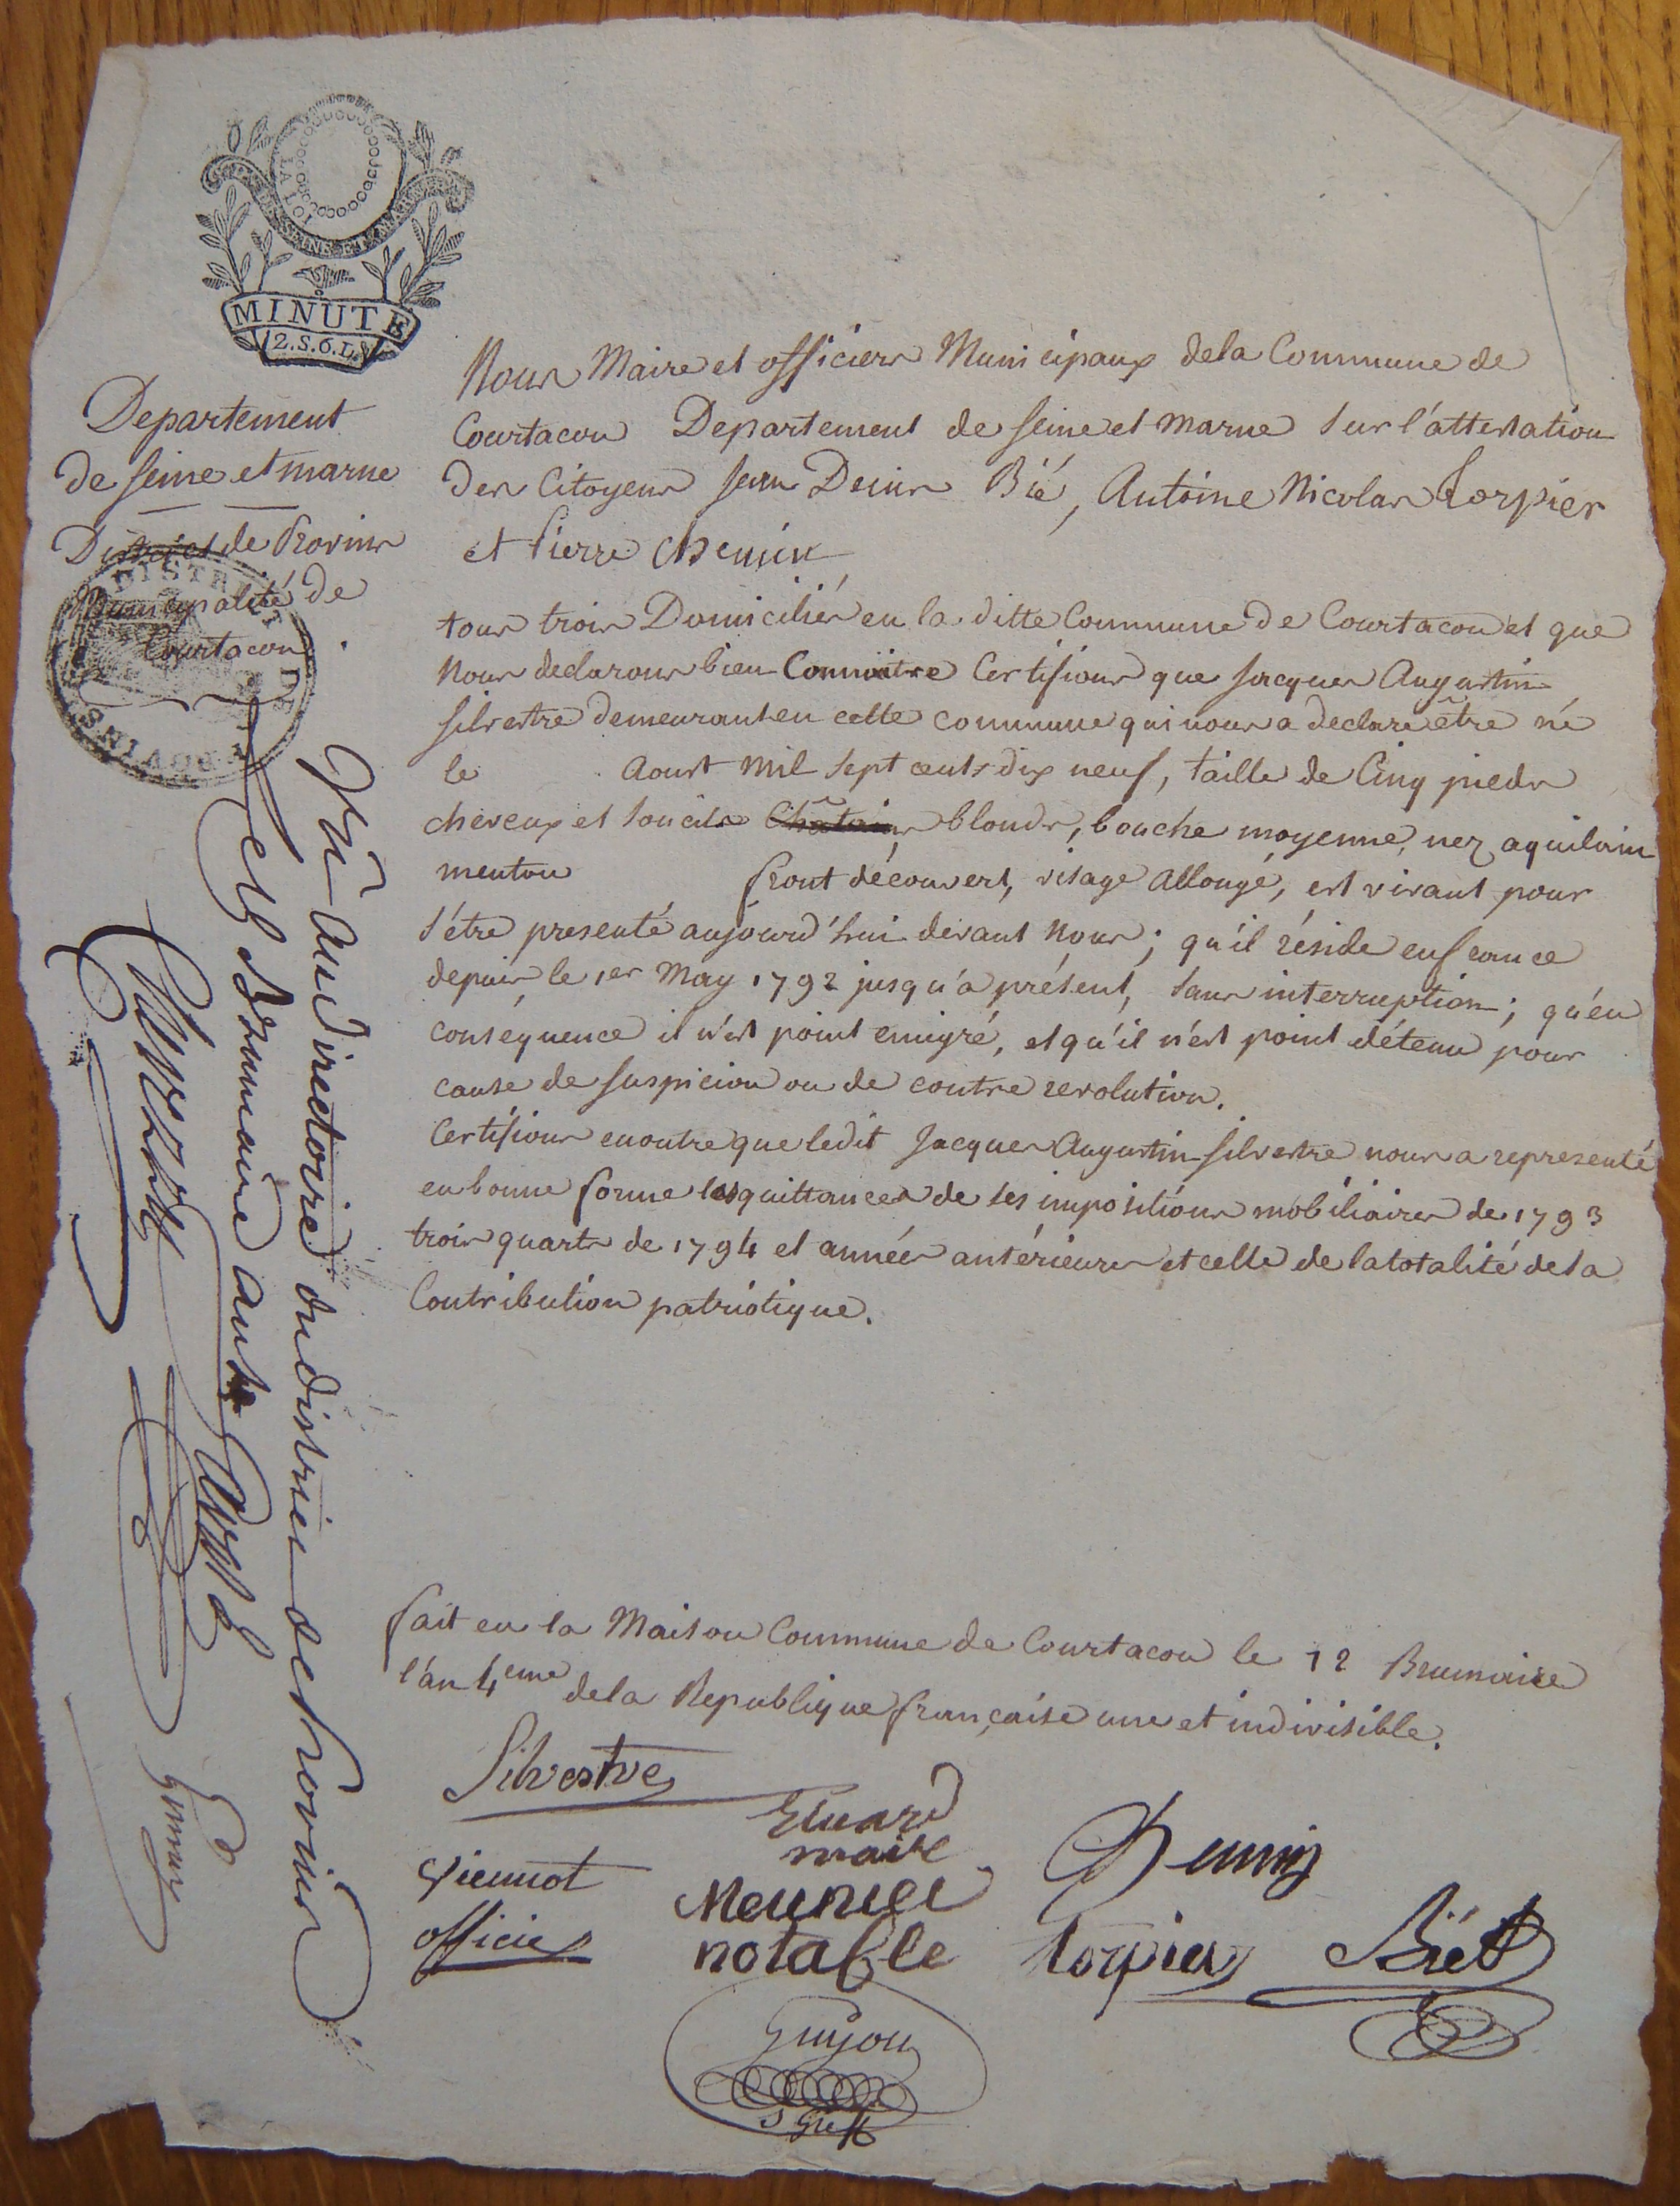 LA LOI
SEINE ET MARNE
MINUTE
12.S.6.D.
Departement
de seine et marne
District de Provins
Municipalité de
Courtacon
DISTRICT DE PROVINS
Nous Maire et officiers Municipaux dela Commune de
Courtacon Departement de seine et marne sur l'attestation
des Citoyens Jean Denis Bié, Antoine Nicolas Torpier
et Pierre Chemin
tous trois Domiciliés en la ditte Commune de Courtacon et que
Nous declarons bien Connoitre Certifions que Jacques Augustin
silvestre demeurant en cette commune qui nous a declaré être né
le aoust mil sept cents dix neuf, taille de Cinq pieds
cheveux et soucils Châtains blonds, bouche moyenne, nez aquilain
menton front découvert, visage allongé, est vivant pour
s'être presenté aujourd'hui devant nous; qu'il réside en france
depuis le 1er May 1792 jusqu'a présent, sans interruption; qu'en
consequence il n'est point emigré, et qu'il n'est point détenu pour
cause de suspicion ou de contre revolution.
Certifions en outre que ledit Jacques Augustin silvestre nous a representé
en bonne forme les quittances de ses impositions mobiliaires de 1793
trois quarts de 1794 et années antérieures et celle de la totalité de sa
Contribution patriotique.
fait en la Maison Commune de Courtacon le 12 Brumaire
l'an 4eme dela Republique française une et indivisible.
Silvestre
maire
Chemin
officier
Meunier
notable
torpier
Biét
Guyon
s Greff
Vu au directoire du district de Provins
Brumaire an 4